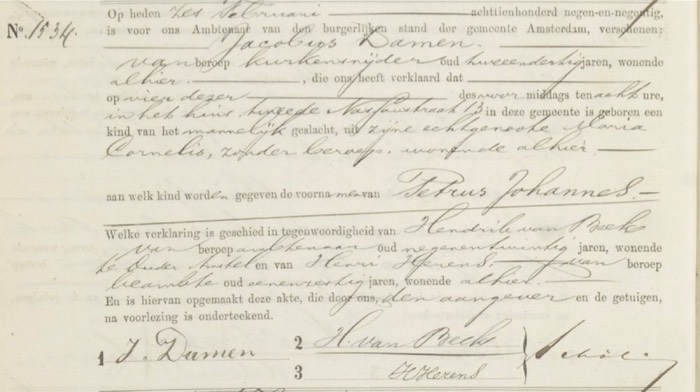 Op heden zes Februari achttienhonderd negen-en-negentig,
Nº. 1534. is voor ons Ambtenaar van den burgerlijken stand der gemeente Amsterdam, verschenen:
Jacobus Damen.
van beroep kurkensnijder oud tweeendertig jaren, wonende
alhier, die ons heeft verklaard dat
op vier dezer des voormiddags ten acht ure,
in het huis tweede Nassaustraat 13 in deze gemeente is geboren een
kind van het mannelijk geslacht, uit zijne echtgenoote Maria
Cornelis, zonder beroep, wonende alhier.
aan welk kind worden gegeven de voornamen van Petrus Johannes.
Welke verklaring is geschied in tegenwoordigheid van Hendrik van Beek
van beroep ambtenaar oud negenentwintig jaren, wonende
te Ouder Amstel en van Henri Herens van beroep
beambte oud eenenveertig jaren, wonende alhier.
En is hiervan opgemaakt deze akte, die door ons, den aangever en de getuigen,
na voorlezing is onderteekend.
1 J. Damen 2 H. van Beek
3 H Herens